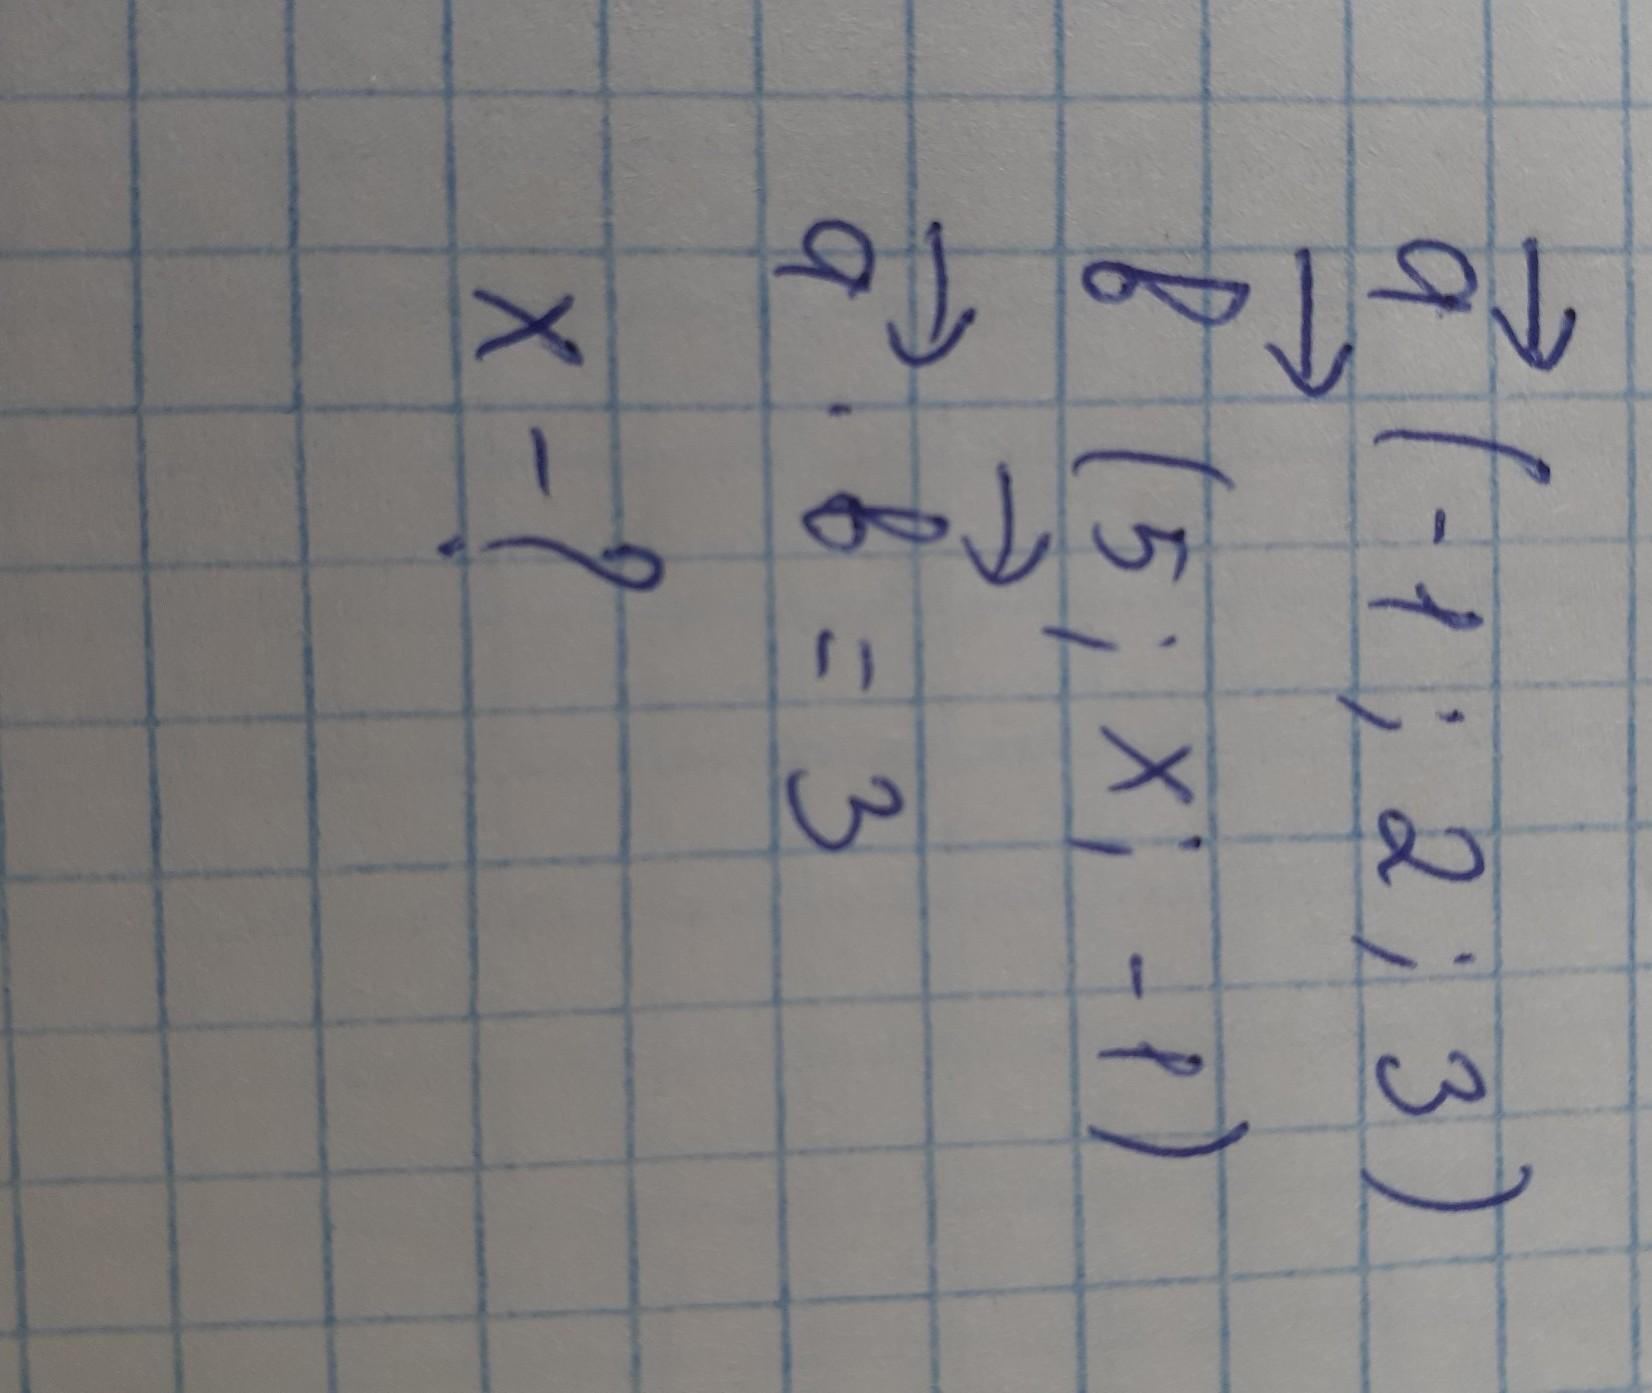 a⃗ (-1; 2; 3)
b⃗ (5; x; -1)
a⃗ · b⃗ = 3
x - ?